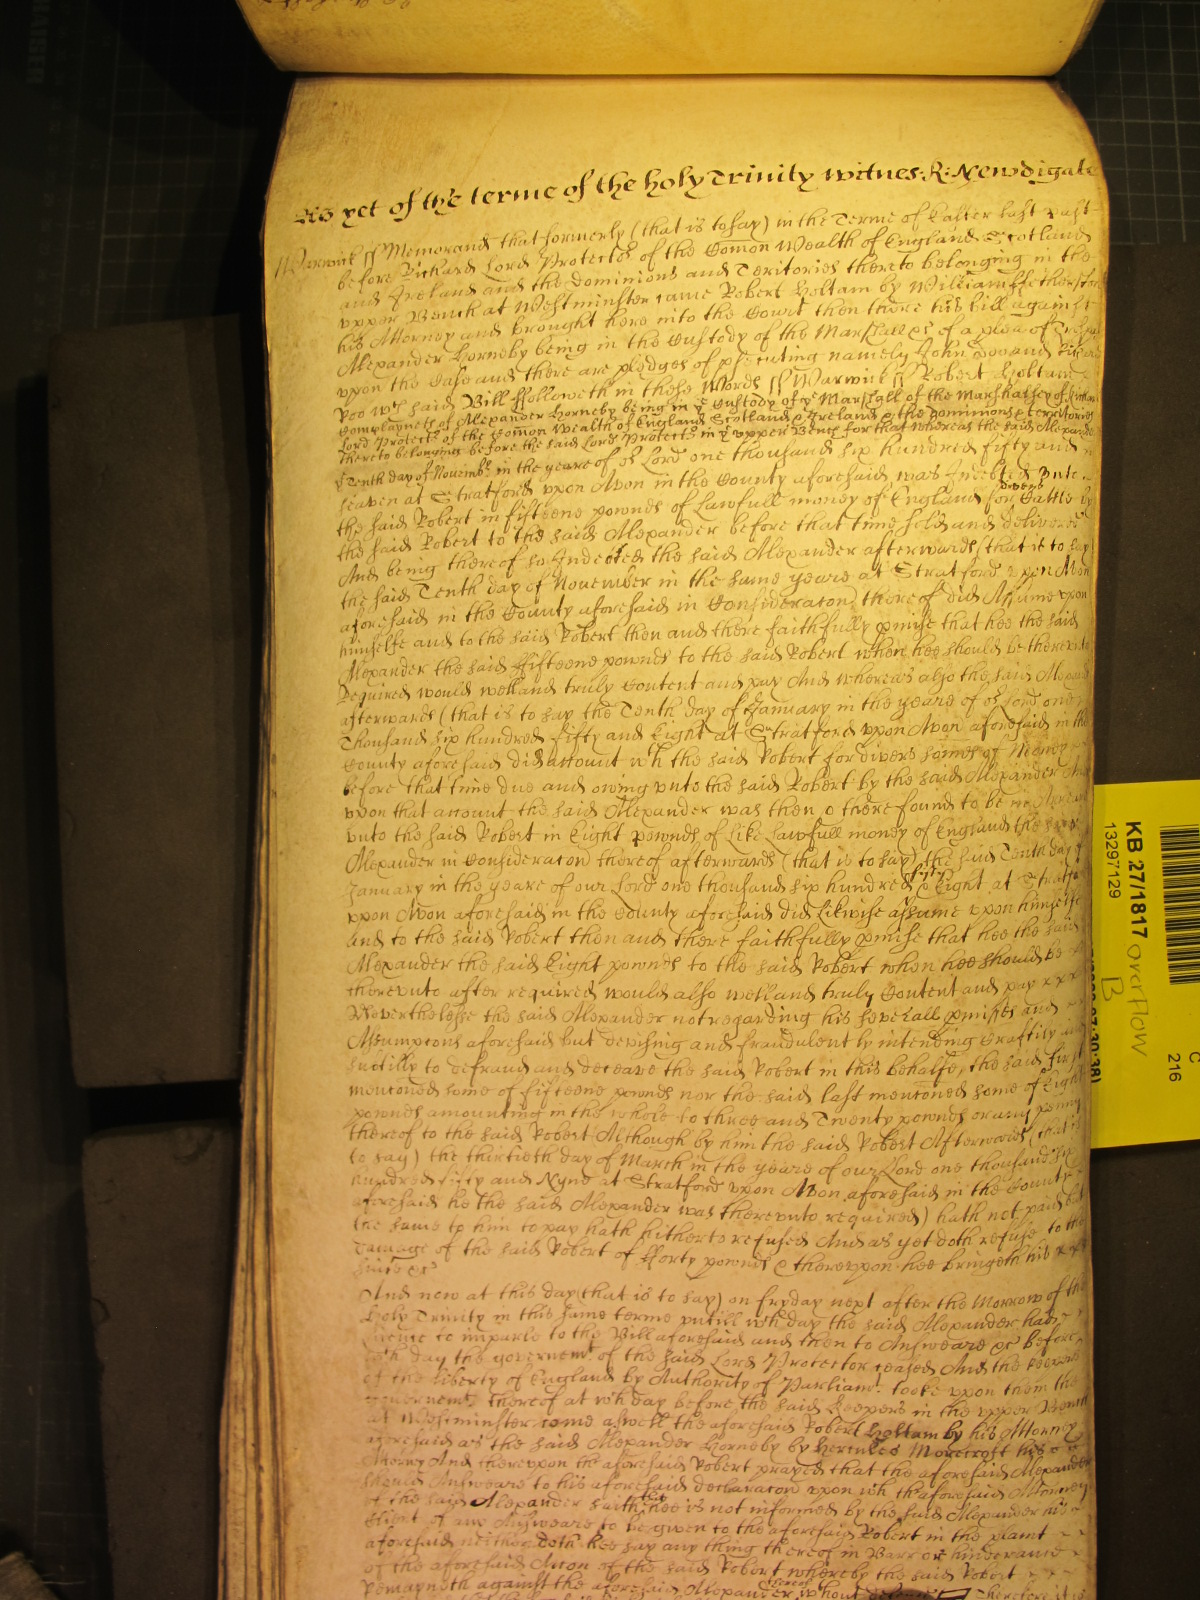 As yet of the terme of the holy Trinity witnes: R: Newdigate
Warwick ss Memorand that formerly (that is to say) in the Terme of Easter last past
before Richard Lord Protector of the Comon Wealth of England Scotland
and Ireland and the dominions and Teritories thereto belonging in the
upper Bench at Westminster came Robert Holtam by William
his Attorney and brought here into the Court then there his bill against
Alexander Horneby being in the Custody of the Marshall &c of a plea of
upon the Case and there are pledges of namely John and Richard
Roo wch said Bill ffolloweth in these Words ss Warwick ss Robert Holtam
Complaynes of Alexander Horneby being in ye Custody of ye Marshall of the Marshalsey of
Lord Protector of the Comon Wealth of England Scotland & Ireland & the dominions & territories
thereto belonging before the said Lord Protector in ye upper Bench for that whereas the said Alexander
ye Tenth day of November in the yeare of or Lord one thousand six hundred fifty and
seaven at Stratford upon Avon in the County aforesaid was Indebted unto
the said Robert in fifteene pownds of Lawfull money of England for divers Cattle by
the said Robert to the said Alexander before that time sold and delivered
And being thereof so Indebted the said Alexander afterwards (that is to say)
the said Tenth day of November in the same yeare at Stratford upon Avon
aforesaid in the County aforesaid in Consideraton thereof did Assume upon
himselfe and to the said Robert then and there faithfully pmise that hee the said
Alexander the said ffifteene pownds to the said Robert when hee should be thereunto
Required would well and truly Content and pay And whereas also the said
afterwards (that is to say the Tenth day of January in the yeare of or Lord one
Thousand six hundred fifty and Eight at Stratford upon Avon aforesaid in the
County aforesaid did account wth the said Robert for divers somes of Money
before that time due and owing unto the said Robert by the said Alexander And
upon that acount the said Alexander was then & there found to be in
unto the said Robert in Eight pownds of Like Lawfull money of England the said
Alexander in Consideraton thereof afterwards (that is to say) the said Tenth day of
January in the yeare of our Lord one thousand six hundred fifty & Eight at
upon Avon aforesaid in the County aforesaid did Likwise assume upon himselfe
and to the said Robert then and there faithfully pmise that hee the said
Alexander the said Eight pownds to the said Robert when hee should be
thereunto after required would also well and truly Content and pay x x x
Neverthelesse the said Alexander not regarding his severall pmisses and
Assumptons aforesaid but devising and fraudulently intending Craftily and
suttilly to defraud and deceave the said Robert in this behalfe, the said first
mentoned some of fifteene pownds nor the said last mentoned some of Eight
pownds amounting in the whole to three and Twenty pownds or any penny
thereof to the said Robert Although by him the said Robert Afterwards (that is
to say) the thirtieth day of March in the yeare of our Lord one thousand six
hundred fifty and Nyne at Stratford upon Avon aforesaid in the County
aforesaid he the said Alexander was thereunto required) hath not paid but
the same to him to pay hath hitherto refused And as yet doth refuse to the
damage of the said Robert of fforty pownds & thereupon hee bringeth his
suite &c
And now at this day (that is to say) on fryday next after the Morrow of the
holy Trinity in this same terme untill wch day the said Alexander had
licence to imparle to the Bill aforesaid and then to Answeare &c before
wch day the governemt of the said Lord Protector ceased And the keepers
of the liberty of England by Authority of Parliamt tooke upon them the
governemt thereof at wch day before the said keepers in the upper Bench
at Westminster come aswell the aforesaid Robert Holtam by his Attorney
aforesaid as the said Alexander Horneby by Hercules Morecroft his
Attorny And thereupon the aforesaid Robert prayed that the aforesaid Alexander
should Answeare to his aforesaid declaraton upon wch the aforesaid Attorney
of the said Alexander saith that hee is not informed by the said Alexander his
Client of any Answeare to be given to the aforesaid Robert in the plaint
aforesaid neither doth hee say any thing thereof in Barr or hinderance
of the aforesaid Acton of the said Robert whereby the said Robert
Remayneth against the aforesaid Alexander thereof wthout defence Therefore it is
KB 27/1817 overflow
13297129
B
216